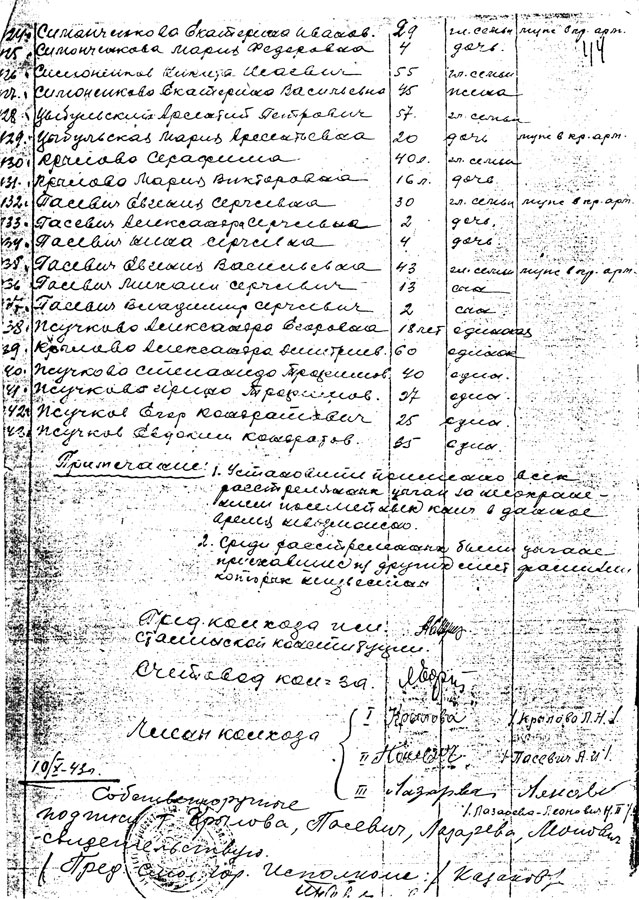 124. Симонченкова Екатерина Иванов. 29 гл. семьи муж в кр. арт.
44
125. Симончикова Мария Федоровна 4 дочь
126. Симоненков Никита Исаевич 55 гл. семьи
127. Симоненково Екатерина Васильевна 45 жена
128. Цыбульский Арсентий Петрович 57. гл. семьи
129. Цыбульская Мария Арсентьевна 20 дочь муж в кр. арт.
130. Крылово Серафима 40 л. гл. семьи
131. Крылово Мария Викторовна 16 л. дочь
132. Пасевич Евгения Сергеевна 30 гл. семьи муж в кр. арт.
133. Пасевич Александра Сергеевна 2 дочь.
134. Пасевич Нина Сергеевна 4 дочь
135. Пасевич Евгения Васильевна 43 гл. семьи муж в кр. арт.
136. Пасевич Михаил Сергеевич 13 сын
137. Пасевич Владимир Сергеевич 2 сын.
138. Жучково Александра Егоровна 18 лет
139. Крылово Александра Дмитриев. 60 одинок
140. Жучково Трофимов. 40 один.
141. Жучково Ирина Трофимов. 27 один.
142. Жучков Егор Кондратьевич 25 один
143. Жучков Евдоким Кондратов. 35 один
Примечание: 1. Установить поименно всех
расстрелянных цыган за
в данное
время невозможно.
2. Среди расстрелянных были цыгане
приехавшие из других мест фамилии
которых неизвестны
Пред. колхоза им.
Сталинской конституции.
Счетовод кол-за.
Члены колхоза
I Крылова / Крылово Л.Н. /
II Пасевич / Пасевич А.И.
III Лазарев
/ Лазарева-Леонович Н.П /
10/X-43 г.
Собственноручные
подписи т. Крылова, Пасевич, Лазарева,
свидетельствую.
/ Пред. Смол. гор. Исполкома: / Казаков /